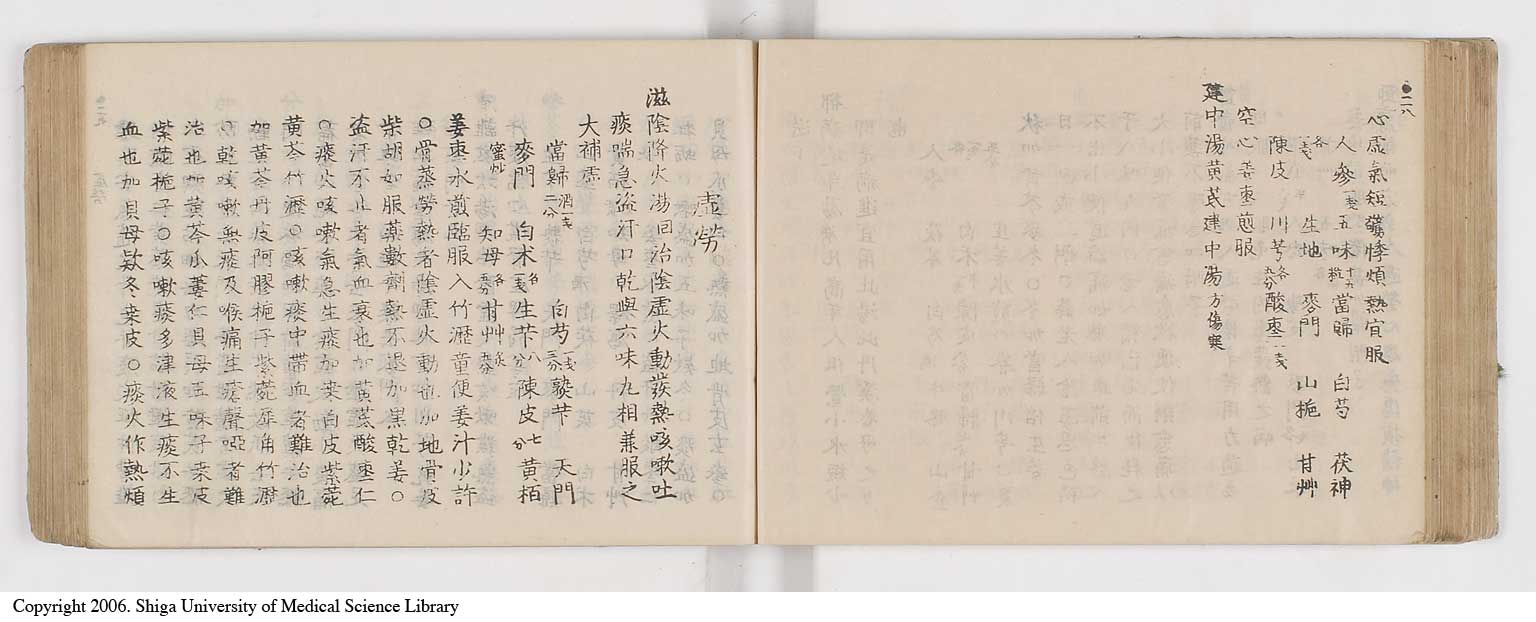 二八
心虚氣短驚悸煩熱宜服
人參一戔五味十六粒當歸 白芍 茯神
各一戔 生地 麥門 山梔 甘艸
陳皮 川芎各五分酸棗一戔
空心姜棗煎服
建中湯黄芪建中湯方傷寒
虚勞
滋陰降火湯回治陰虚火動發熱咳嗽吐
痰喘急盗汗口乾與六味丸相兼服之
大補虚
當歸酒一戔二分 白芍一戔三分熟芐 天門
麥門 白术各一戔生芐八分陳皮七分黄栢
蜜炒 知母各五分甘艸炙五分
姜棗水煎臨服入竹瀝童便姜汁少許
○骨蒸勞熱者陰虚火動也加地骨皮
柴胡如服藥數劑熱不退加黒乾姜○
盗汗不止者氣血衰也加黄蓍酸棗仁
○痰火咳嗽氣急生痰加桒白皮紫菀
黄芩竹瀝○咳嗽痰中帶血者難治也
加黄芩丹皮阿膠梔子紫菀犀角竹瀝
○乾咳嗽無痰及喉痛生瘡聲啞者難
治也加黄芩瓜蔞仁貝母五味子桒皮
紫菀梔子○咳嗽痰多津液生痰不生
血也加貝母款冬桒皮○痰火作熱煩
Copyright 2006. Shiga University of Medical Science Library